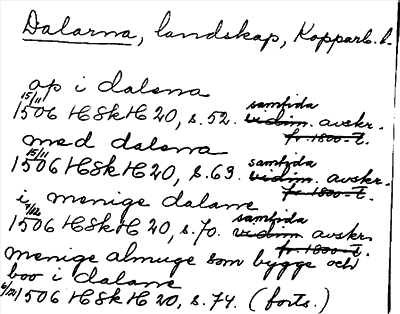 Dalarna, landskap, Kopparb. l.
op i dalena
15/11 1506 HSkH 20, s. 52. samtida vidim. avskr. fr. 1800-t.
med dalena
15/11 1506 HSkH 20, s. 63. samtida vidim. avskr. fr. 1800-t.
i menige dalane
9/12 1506 HSkH 20, s. 70. samtida vidim. avskr. fr. 1800-t.
menige almuge som bygge och
boo i dalane
1506 HSkH 20, s. 74. (forts.)